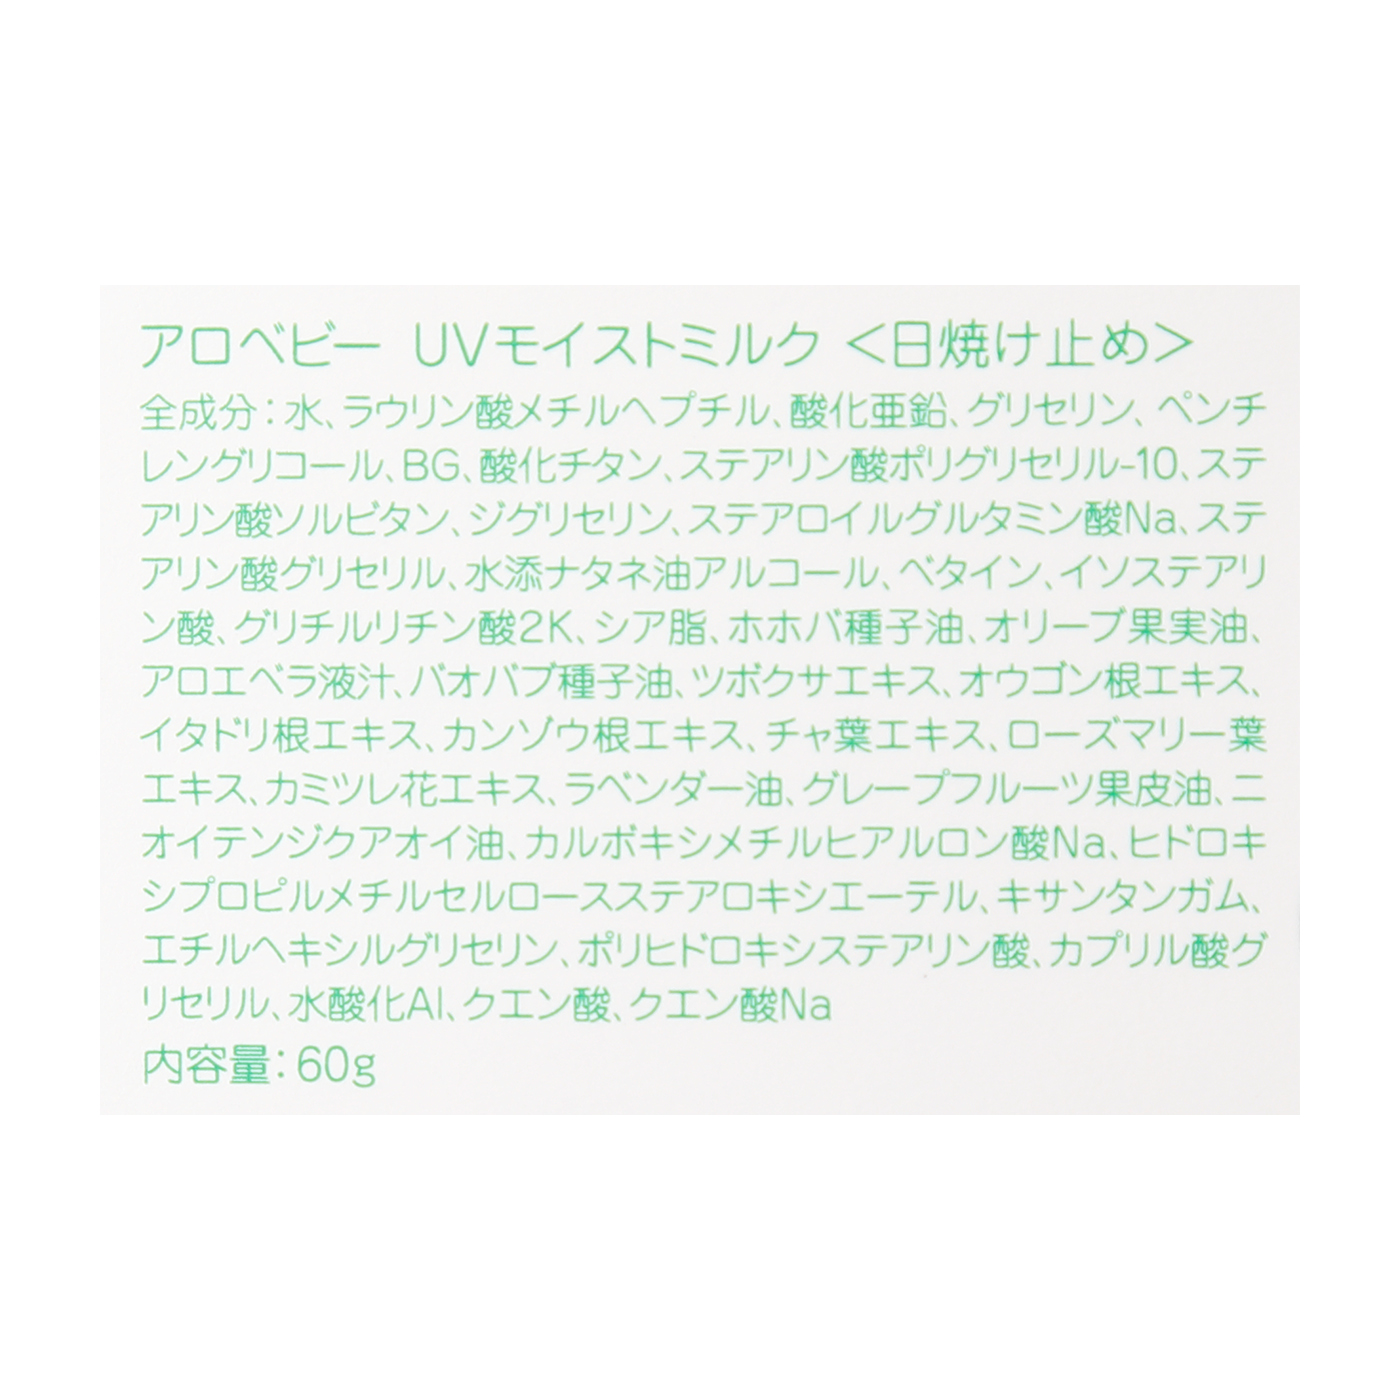 アロベビー UVモイストミルク <日焼け止め>
全成分:水、ラウリン酸メチルヘプチル、酸化亜鉛、グリセリン、ペンチ
レングリコール、BG、酸化チタン、ステアリン酸ポリグリセリル-10、ステ
アリン酸ソルビタン、ジグリセリン、ステアロイルグルタミン酸Na、ステ
アリン酸グリセリル、水添ナタネ油アルコール、ベタイン、イソステアリ
ン酸、グリチルリチン酸2K、シア脂、ホホバ種子油、オリーブ果実油、
アロエベラ液汁、バオバブ種子油、ツボクサエキス、オウゴン根エキス、
イタドリ根エキス、カンゾウ根エキス、チャ葉エキス、ローズマリー葉
エキス、カミツレ花エキス、ラベンダー油、グレープフルーツ果皮油、ニ
オイテンジクアオイ油、カルボキシメチルヒアルロン酸Na、ヒドロキ
シプロピルメチルセルロースステアロキシエーテル、キサンタンガム、
エチルヘキシルグリセリン、ポリヒドロキシステアリン酸、カプリル酸グ
リセリル、水酸化Al、クエン酸、クエン酸Na
内容量:60g